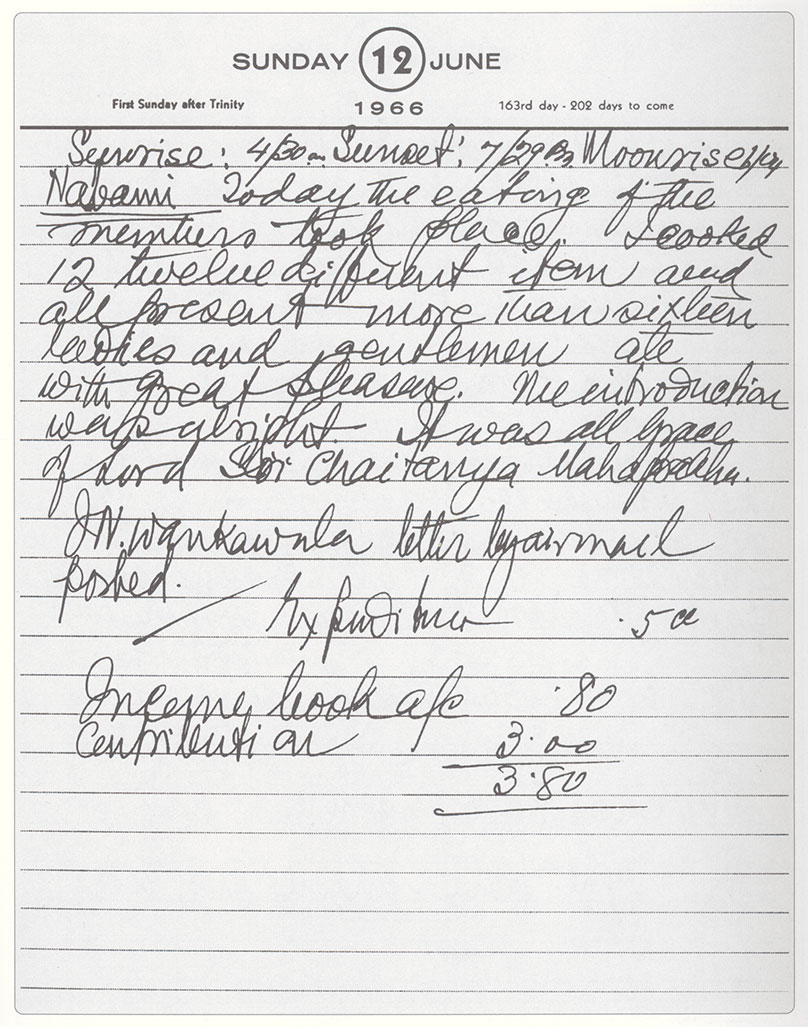 SUNDAY 12 JUNE
First Sunday after Trinity 1966 163rd day - 202 days to come
Sunrise: 4/30 am Sunset: 7/29 Pm Moonrise
Navami Today the eating of the
members took place. I cooked
12 twelve different item and
all present more than sixteen
ladies and gentlemen ate
with great pleasure. The introduction
was alright. It was all grace
of Lord Sri Chaitanya Mahaprabhu.
J.N. Wankawala letter by air mail
posted.
Expenditure .50
Income book a/c .80
Contribution 3.00
3.80